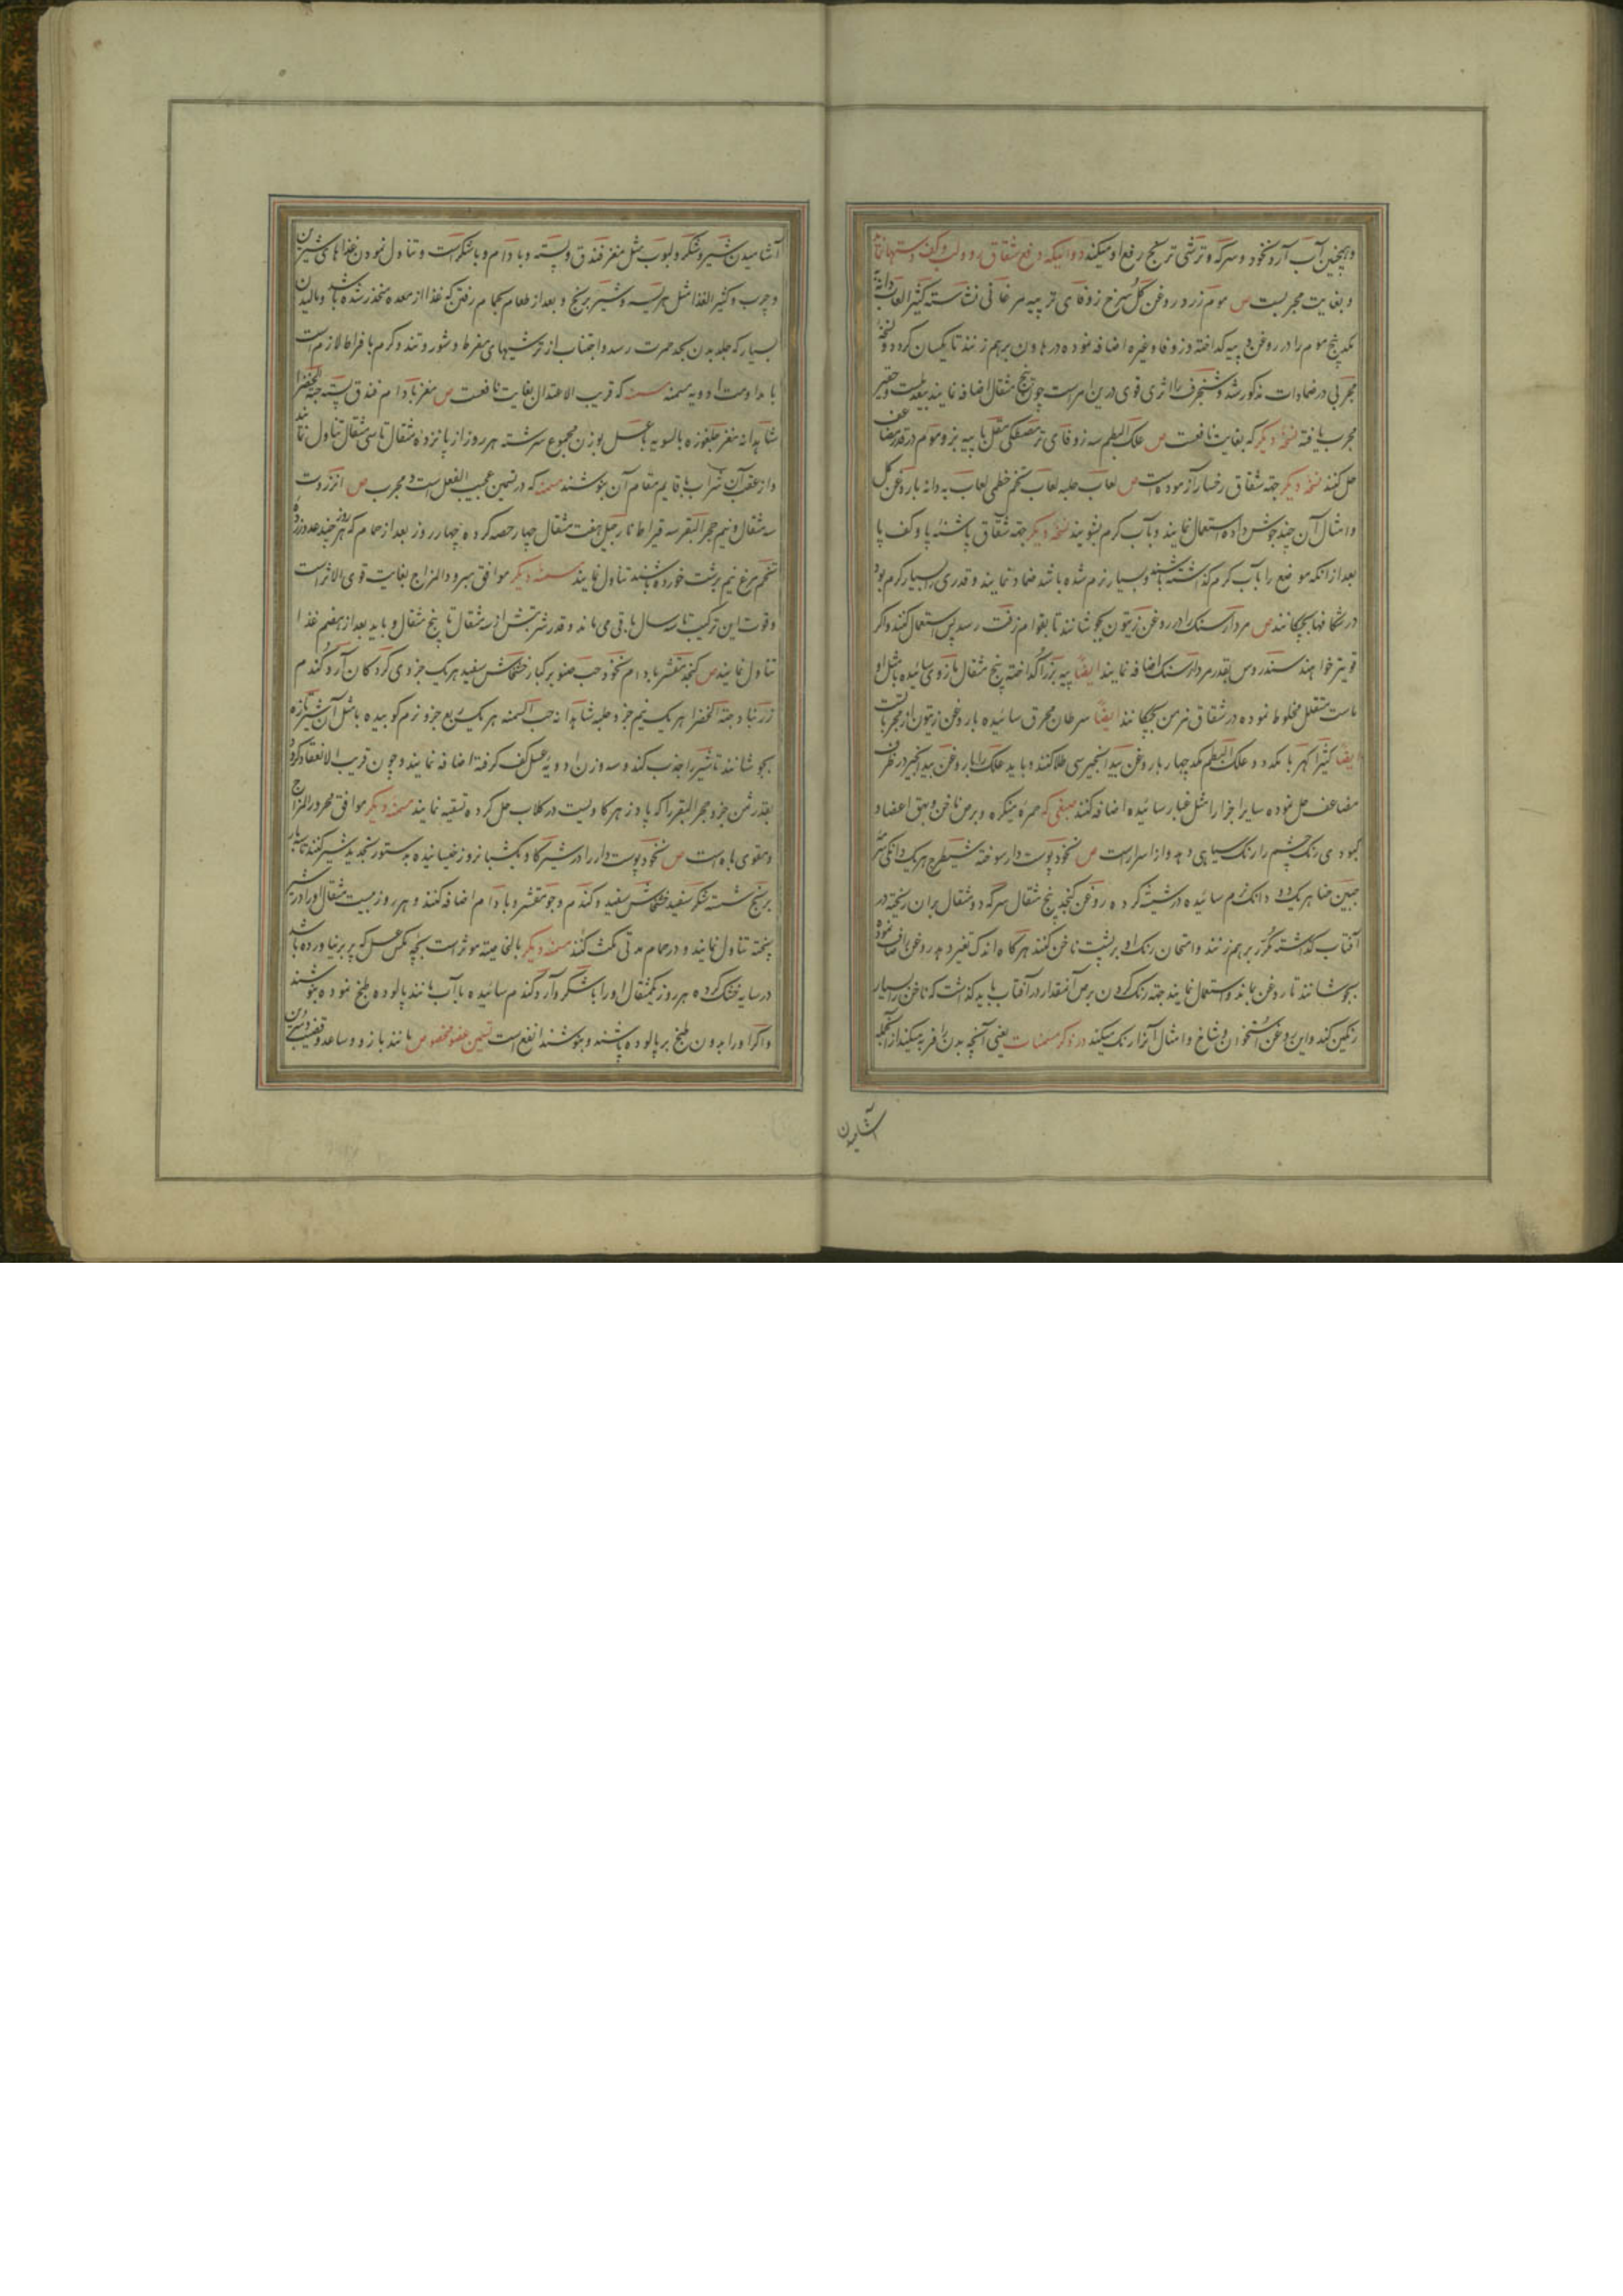 و همچنین آب آرد نخود و سرکه و ترشی ترنج رفع او میکند دوائیکه رفع شقاق رو و لب و کف دستها نماید
و بغایت مجربست ص موم زرد روغن گل سرخ زوفای تر پیه مرغابی نشاسته کثیرا لعاب بهدانه
موم را در روغن و پیه گداخته و زوفا و غیره اضافه نموده در هاون برهم زنند تا یکسان گردد و نسخهٔ
مجربی در ضمادات مذکور شد و شنجرف را اثری قوی درین امر است چون پنج مثقال اضافه نمایند و حقیر
مجرب یافته نسخهٔ دیگر که بغایت نافعست ص علک البطم سه زوفای تر مصطکی مقل با پیه بز و موم در قدر مضاعف
حل کنند نسخهٔ دیگر جهة شقاق رخسار آزموده است ص لعاب حلبه لعاب تخم خطمی لعاب به دانه با روغن گل
و امثال آن چند جوش داده استعمال نمایند و بآب گرم بشویند نسخهٔ دیگر جهة شقاق پاشنهٔ پا و کف پا
بعد از انکه موضع را بآب گرم گذاشته باشند و بسیار نرم شده باشد ضماد نمایند و قدری را بسیار گرم بود
در شکافها بچکانند ص مردارسنگ را در روغن زیتون بجوشانند تا بقوام زفت رسد پس استعمال کنند و اگر
قویتر خواهند سندروس بقدر مردارسنگ اضافه نمایند ایضا پیه بز را گداخته پنج مثقال مازوی سائیده با مثل او
مخلوط نموده در شقاق مزمن بچکانند ایضا سرطان محرق سائیده با روغن زیتون از مجرباتست
ایضا کثیرا کهربا یکدو و علک البطم یکدو چهار با روغن بید انجیر سی طلا کنند و باید علک را با روغن بید انجیر در ظرف
مضاعف حل نموده سایر اجزا را مثل غبار سائیده اضافه کنند صبغی که حمره میگره و برص ناخن و بهق اعضا و
کبودی رنگ چشم را رنگ سیاهی دهد و از اسرارست ص نخود پوست دار سوخته شیطرج هر یک دانگی سرمه
حنا هر یک دو دانگ نرم سائیده در شیشه کرده روغن کنجد پنج مثقال سرکه دو مثقال بران ریخته در
آفتاب گذاشته مکرر برهم زنند و امتحان رنگ او بر پشت ناخن کنند هرگاه اندک تغییر دهد روغن را صاف نموده
بجوشانند تا روغن بماند و استعمال نمایند جهة رنگ کردن برص آنمقدار در آفتاب باید گذاشت که ناخن را بسیار
رنگین کند و این روغن استخوان و شاخ و امثال آنرا رنگ میکند در ذکر مسمنات یعنی آنچه بدن را فربه میکند از آنجمله
آشامیدن
آشامیدن شیر و شکر و لبوب مثل مغز فندق و پسته و بادام و با شکر است و تناول نمودن غذاهای شیرین
و چرب و کثیر الغذا مثل هریسه و شیربرنج و بعد از طعام بحمام رفتن که غذا از معده منحدر نشده باشد و مالیدن
بسیار که جلد بدن بحد حمرت رسد و اجتناب از ترشیهای مفرط و شور و تند و گرم بافراط لازم است
با مداومت ادویه مسمنه مسمنه که قریب الاعتدال بغایت نافعست ص مغز بادام فندق پسته حبة الخضرا
شاهدانه مغز جلغوزه بالسویه با عسل بوزن مجموع سرشته هر روز از پانزده مثقال تا سی مثقال تناول نماید
و از عقب آن شراب یا قایم مقام آن بنوشند مسمنه که در تسمین عجیب الفعل است و مجرب ص انزروت
سه مثقال و نیم حجر البقر سه قیراط نارجیل هفت مثقال چهار حصه کرده چهار روز بعد از حمام که هر روز چند عدد زرده
تخم مرغ نیم برشت خورده باشند تناول نمایند مسمنهٔ دیگر موافق مبرود المزاج بغایت قوی الاثر است
و قوت این ترکیب تا سه سال باقی می‌ماند و قدر شربتش از سه مثقال تا پنج مثقال و باید بعد از هضم غذا
تناول نمایند ص کنجد مقشر بادام نخود حب صنوبر کبار خشخاش سفید هر یک جزوی گردکان آرد گندم
زرنباد حبة الخضرا هر یک نیم جزو حلبه شاهدانه حب السمنه هر یک ربع جزو نرم کوبیده با مثل آن شیر تازه
بجوشانند تا شیر را جذب کند و سه وزن ادویه عسل کف گرفته اضافه نمایند و چون قریب الانعقاد گردد
بقدر ثمن جزو حجر البقر را که پادزهر گاویست در گلاب حل کرده تسقیه نمایند مسمنهٔ دیگر موافق محرور المزاج
و مقوی باه است ص نخود پوست دار را در شیر گاو یکشبانروز خیسانیده بدستور تجدید شیر کنند تا سه بار
برنج شسته شکر سفید خشخاش سفید و گندم و جو مقشر و بادام اضافه کنند و هر روز بیست مثقال او را در شیر
پخته تناول نمایند و در حمام مدتی مکث کنند مسمنهٔ دیگر بالخاصیته موثر است بچه مگس عسل که پر بر نیاورده باشد
در سایه خشک کرده هر روز یکمثقال او را با شکر و آرد گندم سائیده با آب مانند پالوده طبخ نموده بنوشند
و اگر او را بدون طبخ بر پالوده پاشند و بنوشند انفع است تسمین عضو مخصوص مانند بازو و ساعد و قضیب